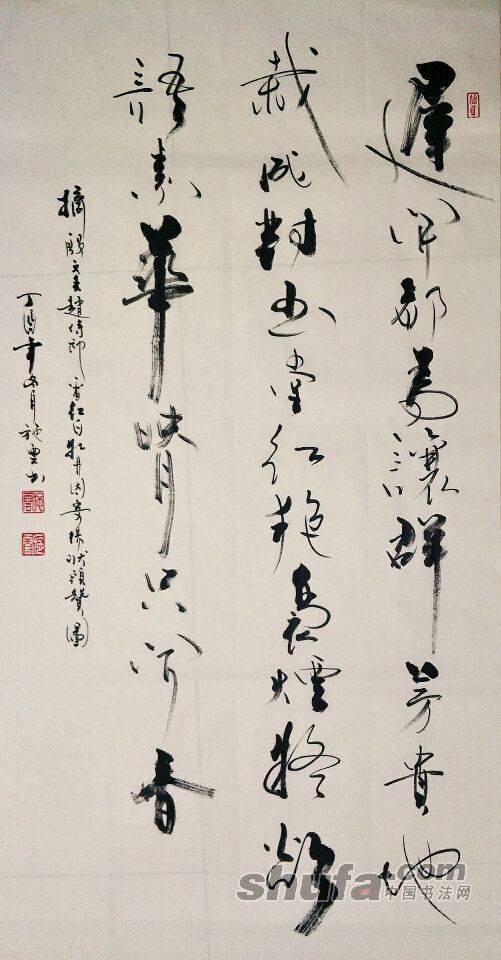 遲開都為讓群芳貴地
栽成對玉堂紅艷裊煙疑欲
語素華映月只聞香
摘殷文圭趙侍郎看紅白牡丹因寄楊狀頭贊圖
丁酉年冬月施雲书
shufa.com
中国书法网